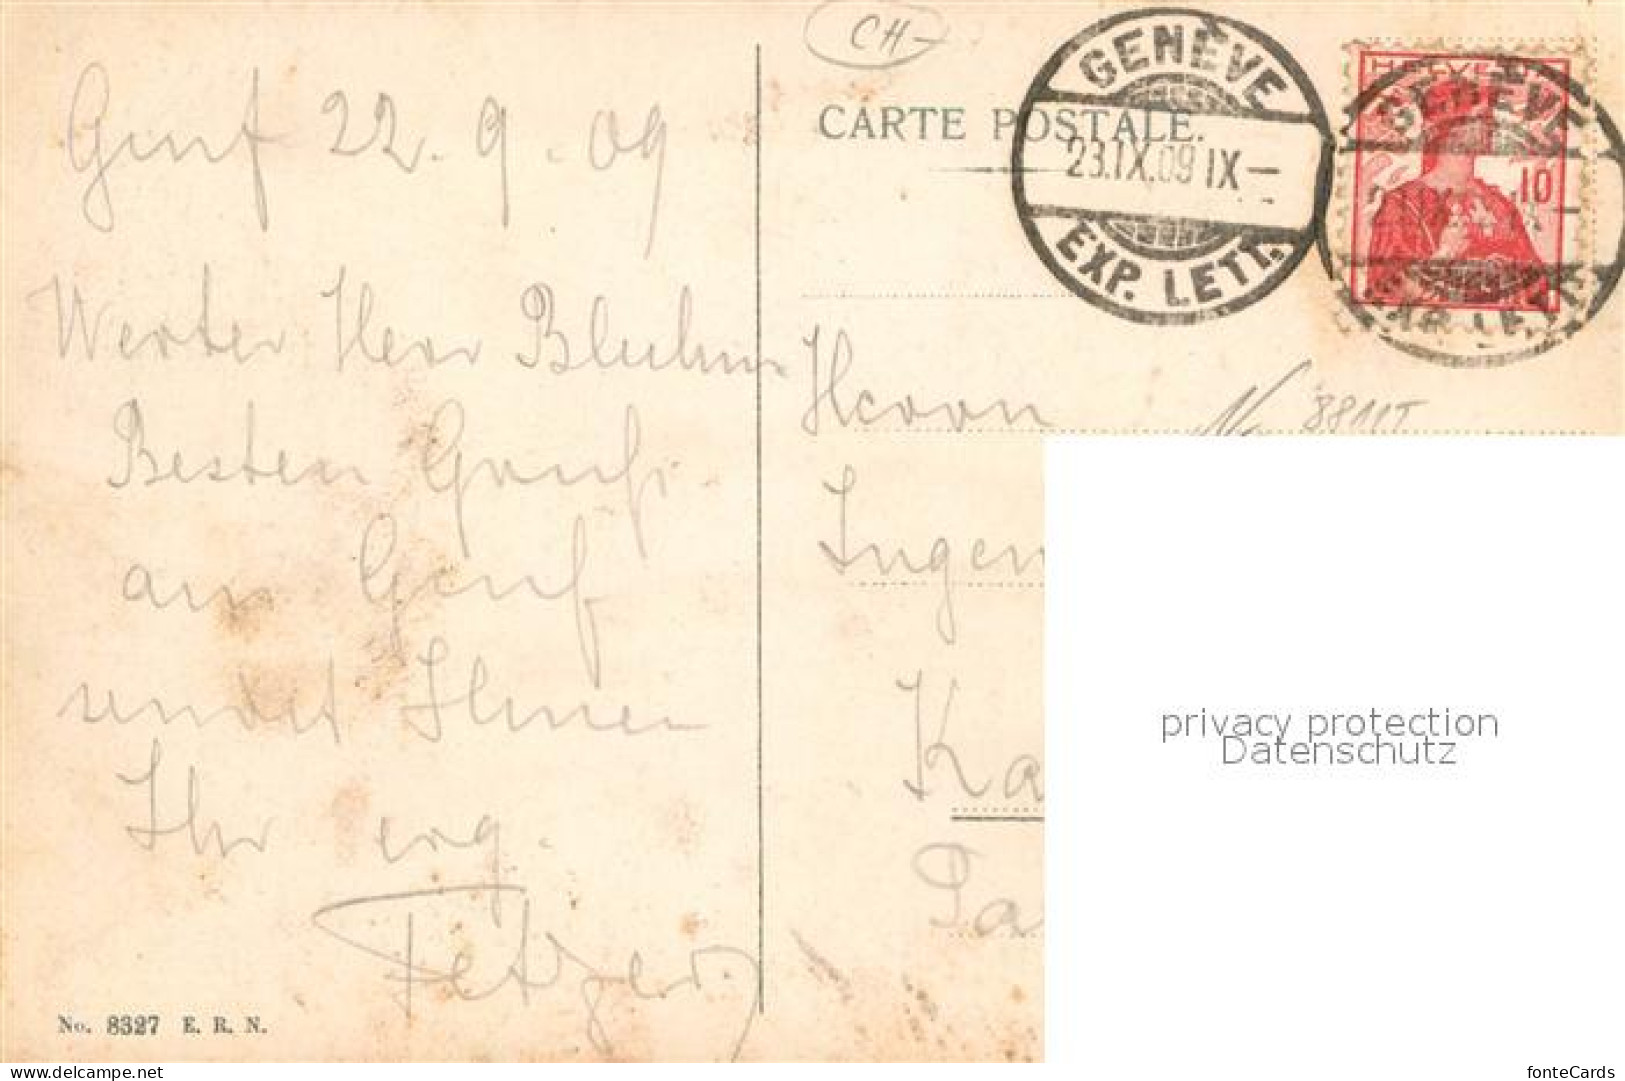 CH-
CARTE POSTALE.
GENÈVE
23.IX.09 IX-
EXP. LETT.
HELVETIA
10
GENÈVE
Genf 22.9.09
Werter Herr
Besten Gruß
aus Genf
sendet Ihnen
Ihr erg.
Fetzer
Herrn
Ingen
Ka
No. 8327 E. R. N.
privacy protection
Datenschutz
www.delcampe.net/collections/michel41500
fonteCards